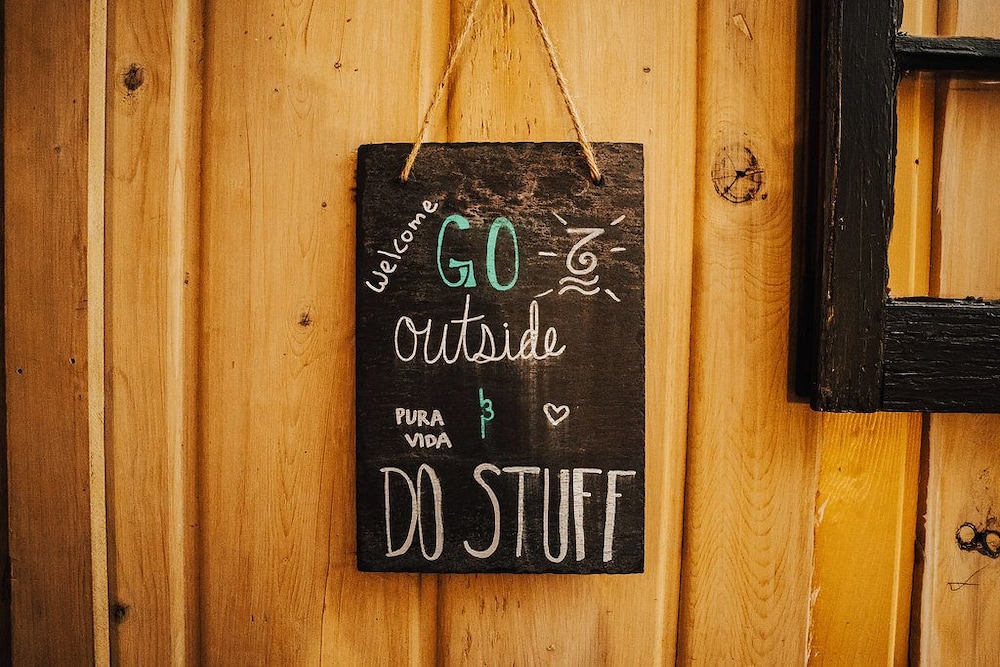 Welcome
GO
outside
&
PURA
VIDA
DO STUFF